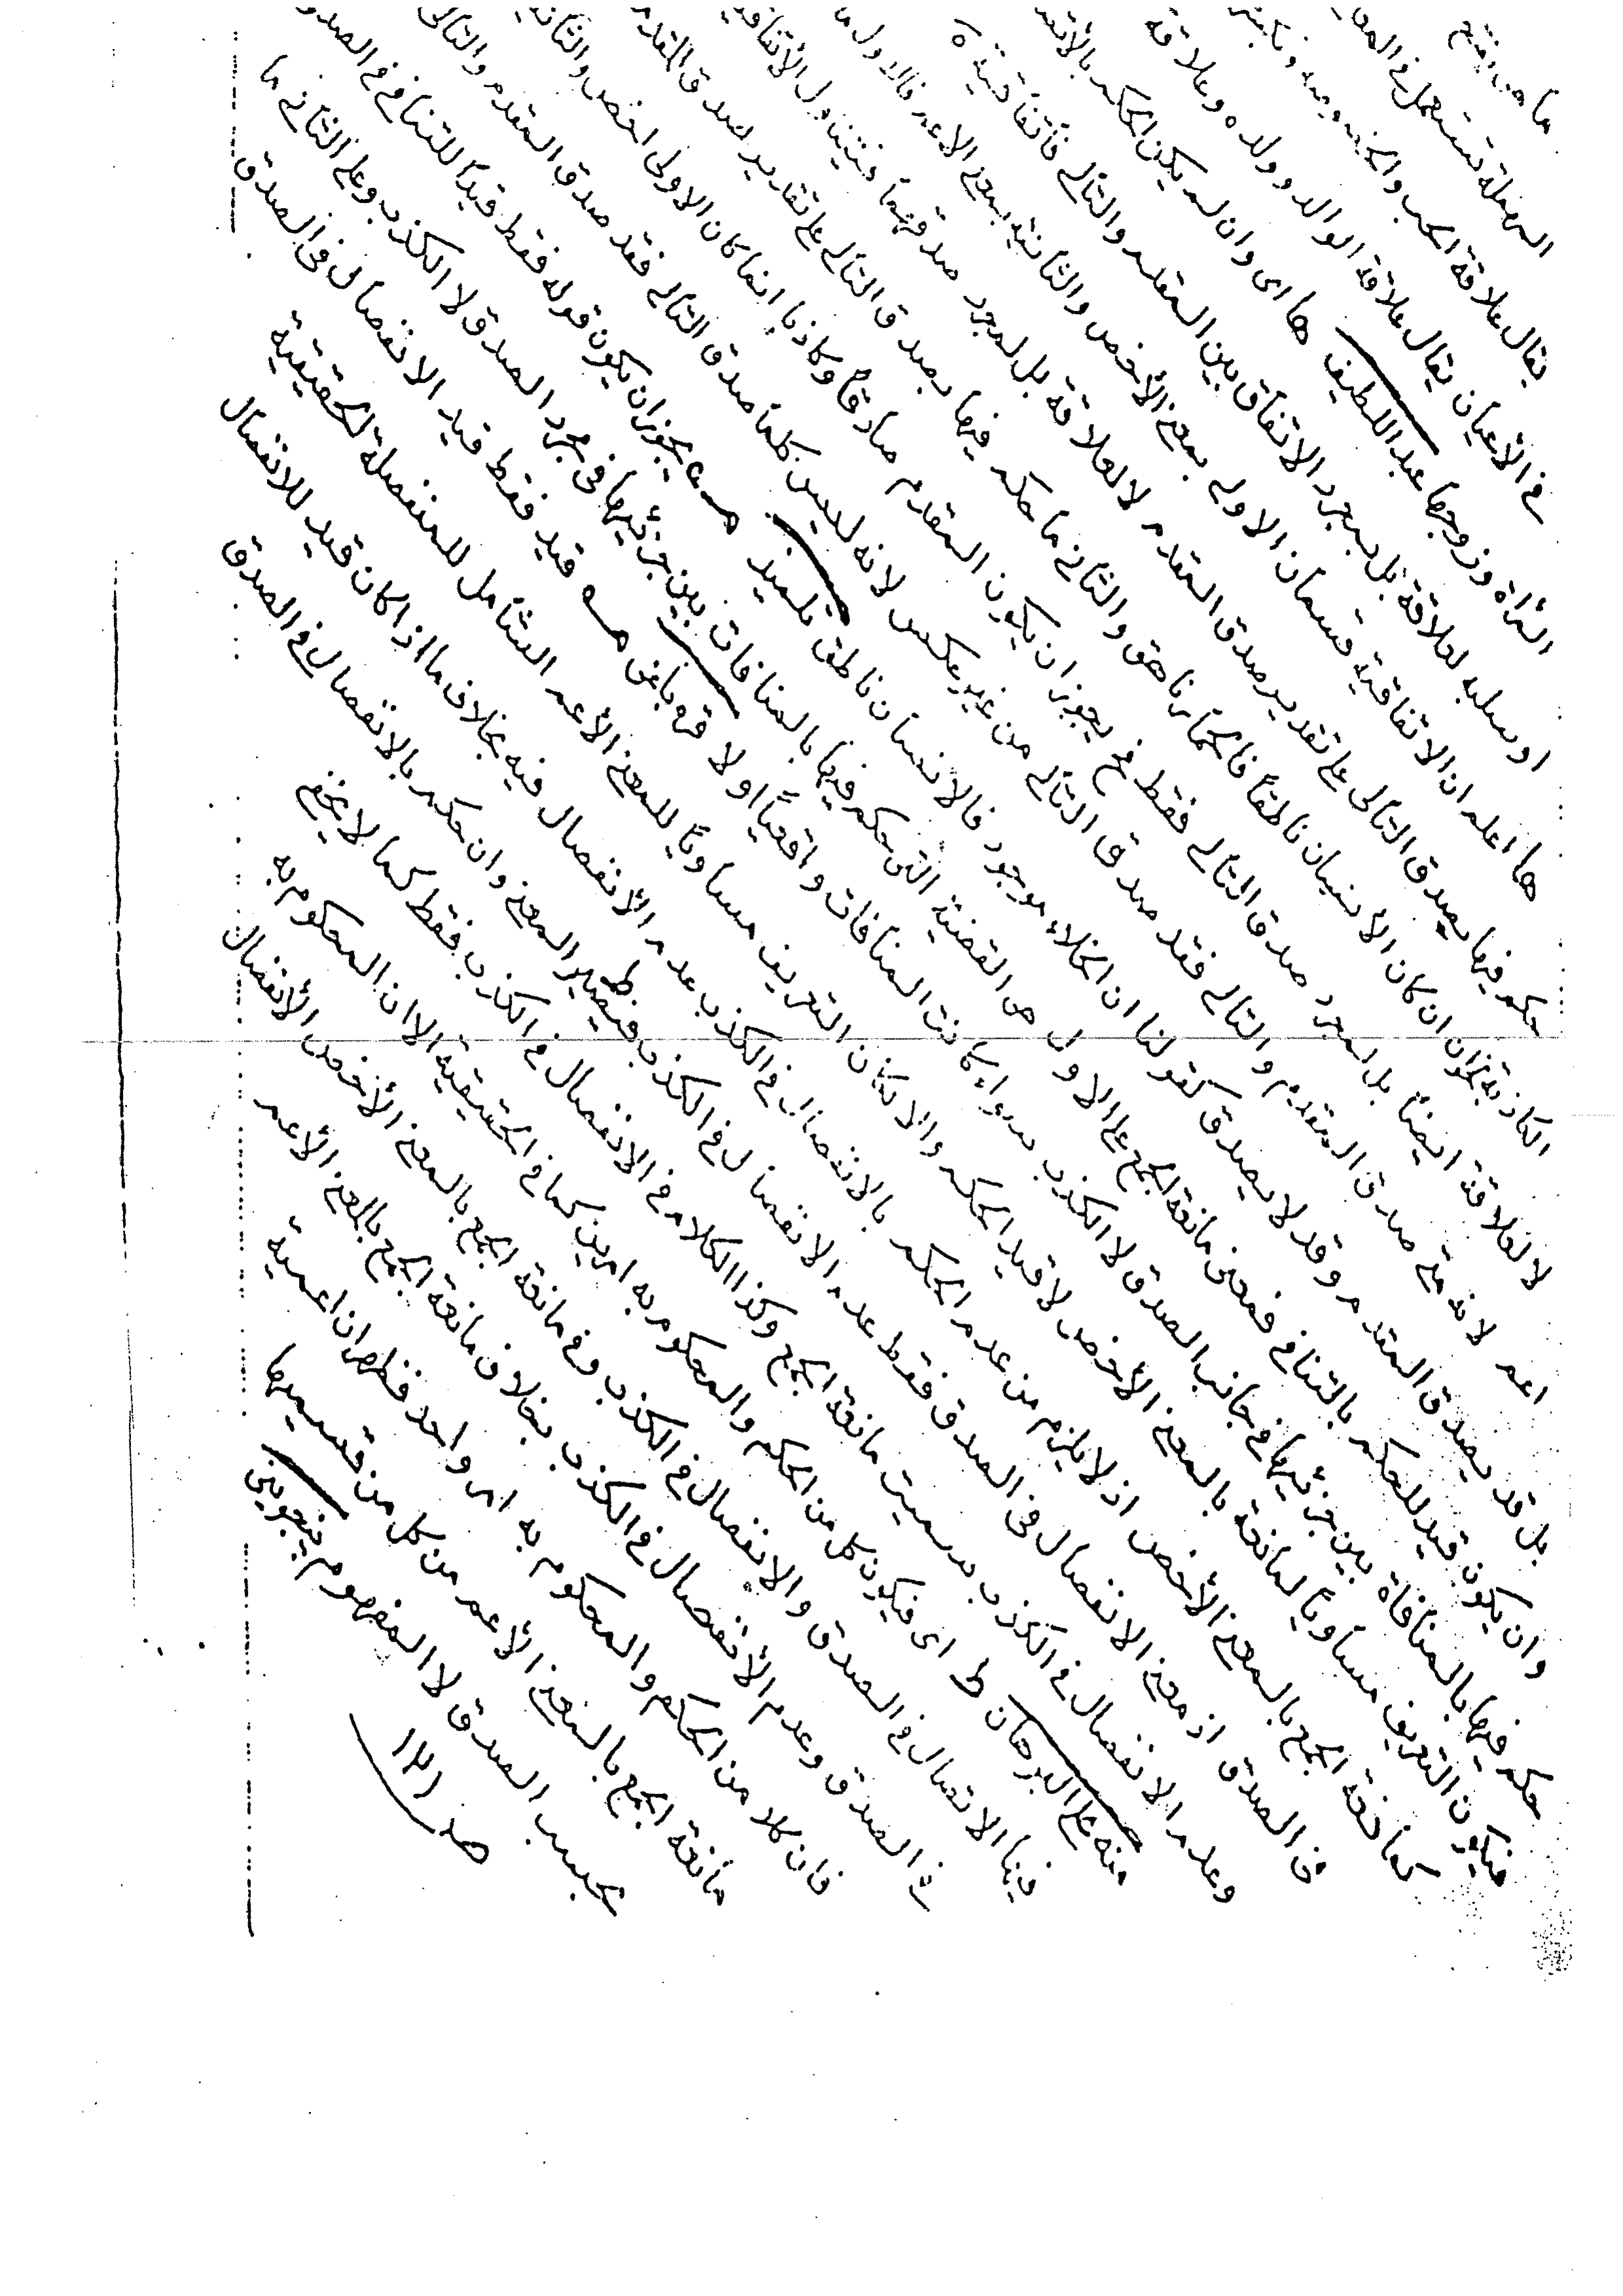 ما هى بفتح
المهملة تستعمل فى المعا
يقال علاقة الحب والخصومة وبكسر
فى الأعيان يقال علاقة الوالد وولده وعلاقة
المرأة وزوجها عبد اللطيف ها اى وان لم يكن الحكم بالأتصـ
او سلبه لعلاقة بل بمجرد الاتفاق بين المقدم والتالى فأتفاقية ه
ها اعلم ان الاتفاقية قسمان الاولى بمعنى الأخص والثانية بمعنى الاعم فالاول ما
حكم فيها بصدق التالى على تقدير صدق المقدم لا لعلاقة بل لمجرد صدقهما فيتناول الأتفاقية
الكاذبة نحو ان كان الأنسان ناطقا فالحمار ناهق والثانى ما حكم فيها بصدق التالى على تقدير صدق المقدم
لا لعلاقة ايضا بل لمجرد صدق التالى فقط فح يجوز ان يكون المقدم صادقا وكاذبا ايضا كان الاولى اخص والثانية
اعم لانه متى صدق المقدم والتالى فقد صدق التالى من غير عكس لانه ليس كلما صدق التالى فقد صدق المقدم والتالى
بل قد يصدق المقدم وقد لا يصدق كقولنا ان الخلاء موجود فالانسان ناطق تلميذ مـ يجوز ان يكون قوله فقط قيدا للتنافى فى الصد
وان يكون قيد للحكم بالتنافى فمعنى مانعة الجمع على الاول هى القضية التى حكم فيها بالمنافات بين جزئيها فى مجرد الصدق لا الكذب وعلى الثانى ما
حكم فيها بالمنافاة بين جزئيها فى جانب الصدق لا الكذب سواء كانت المنافات واقعيا او لا قره باغى مـ قيد فقط قيد الانفصال فى الصدق
فيكون التعريف مساويا لمانعة بالمعنى الأخص لا قيد الحكم والا لكان التعريف مساويا للمعنى الأعم الشامل للمنفصلة الحقيقية
كمانعة الجمع بالمعنى الأخص اذ لا يلزم من عدم الحكم بالانفصال فى الكذب عدم الأنفصال فيه بخلاف ما اذا كان قيد للانفصال
فى الصدق اذ معنى الانفصال فى الصدق فقط عدم الانفصال فى الكذب فيصير المعنى وان حكم بالانفصال فى الصدق
وعدم الانفصال فى الكذب سميت مانعة الجمع وكذا الكلام فى الانفصال فى الكذب فقط كما لا يخفى
منه على البرهان ط اى فيكون كل من الحكم والمحكوم به امرين كما فى الحقيقية الا ان المحكوم به
فيها الانفصال فى الصدق والانفصال فى الكذب وفى مانعة الجمع بالمعنى الأخص الأنفصال
فى الصدق وعدم الأنفصال فى الكذب بخلاف مانعة الجمع بالمعنى الأعم
فان كلا من الحكم والمحكوم به امر واحد فظهر ان اعمية
مانعة الجمع بالمعنى الأعم من كل من قسيميها
بحسب الصدق لا المفهوم ينجوينى
صـ ١٢١